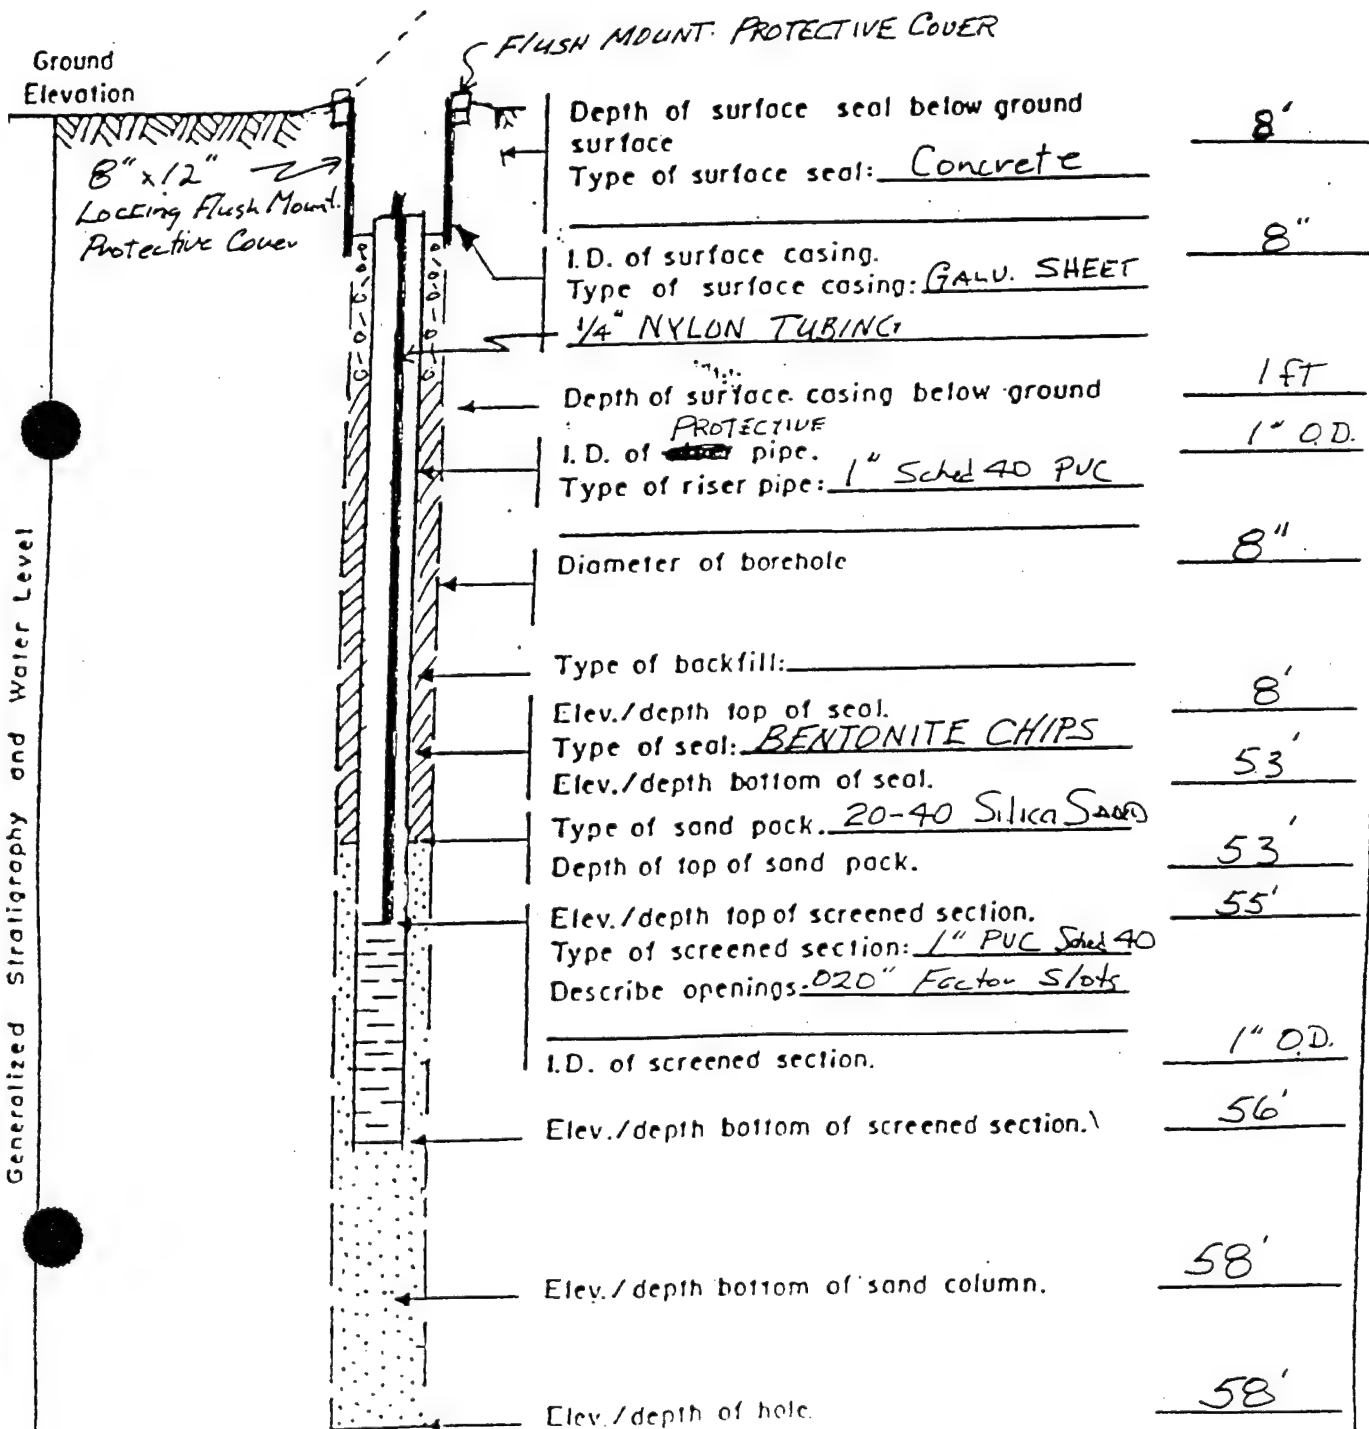 FLUSH MOUNT PROTECTIVE COVER
Ground
Elevation
8" x 12"
Locking Flush Mount.
Protective Cover
Depth of surface seal below ground
surface 8'
Type of surface seal: Concrete
I.D. of surface casing. 8"
Type of surface casing: GALV. SHEET
1/4" NYLON TUBING
Depth of surface casing below ground 1 fT
PROTECTIVE
I.D. of pipe. 1" O.D.
Type of riser pipe: 1" Sched 40 PVC
Diameter of borehole 8"
Type of backfill:
Elev./depth top of seal. 8'
Type of seal: BENTONITE CHIPS
Elev./depth bottom of seal. 53'
Type of sand pack. 20-40 Silica SAND
Depth of top of sand pack. 53'
Elev./depth top of screened section. 55'
Type of screened section: 1" PVC Sched 40
Describe openings. .020" Factor Slots
I.D. of screened section. 1" O.D.
Elev./depth bottom of screened section.\ 56'
Elev./depth bottom of sand column. 58'
Elev./depth of hole. 58'
Generalized Stratigraphy and Water Level